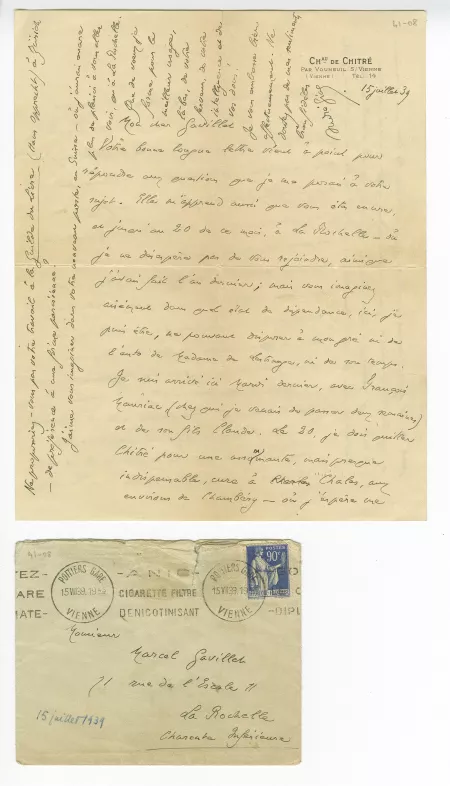 41-08
CHAU DE CHITRÉ
PAR VOUNEUIL S/VIENNE
(VIENNE) TEL. 14
15 juillet 39
Mon cher Gavillet
Votre bonne longue lettre vient à point pour
répondre aux question que je me posais à votre
sujet. Elle m'apprend aussi que vous êtes encore,
et jusqu'au 20 de ce mois, à la Rochelle – où
je ne désespère pas de vous rejoindre, ainsi que
j'avais fait l'an dernier; mais vous imaginez
aisément dans quel état de dépendance, ici, je
puis être, ne pouvant disposer à mon gré ni de
l'auto de Madame de ni de son temps.
Je suis arrivé ici mardi dernier, avec François
Mauriac (chez qui je venais de passer deux semaines)
et de son fils Claude. Le 20, je dois quitter
Chitré pour une mais presque
indispensable, cure à Chales, aux
environs de Chambéry – où j'espère me
Ne proposeriez-vous pas votre travail à la Guilde du Livre à
– de préférence à une place
J'aime vous imaginer dans votre nouveau poste, en Suisse – où j'aurai encore
plus de plaisir à vous aller
voir qu'à la Rochelle.
Que de vœux je
forme pour le
meilleur usage,
là-bas, de votre
ferveur, de votre
intelligence et de
vos dons!
Je vous embrasse bien
affectueusement. Ne
doutez pas de mes sentiments
bien fidèles
André Gide
41-08
POITIERS GARE
15 VII 39
VIENNE
-ANIC-
CIGARETTE FILTRE
DENICOTINISANT
POITIERS GARE
VIENNE
POSTES
90c
Monsieur
Marcel Gavillet
71 rue de l'Escale 11
La Rochelle
Charente Inférieure
15 juillet 1939